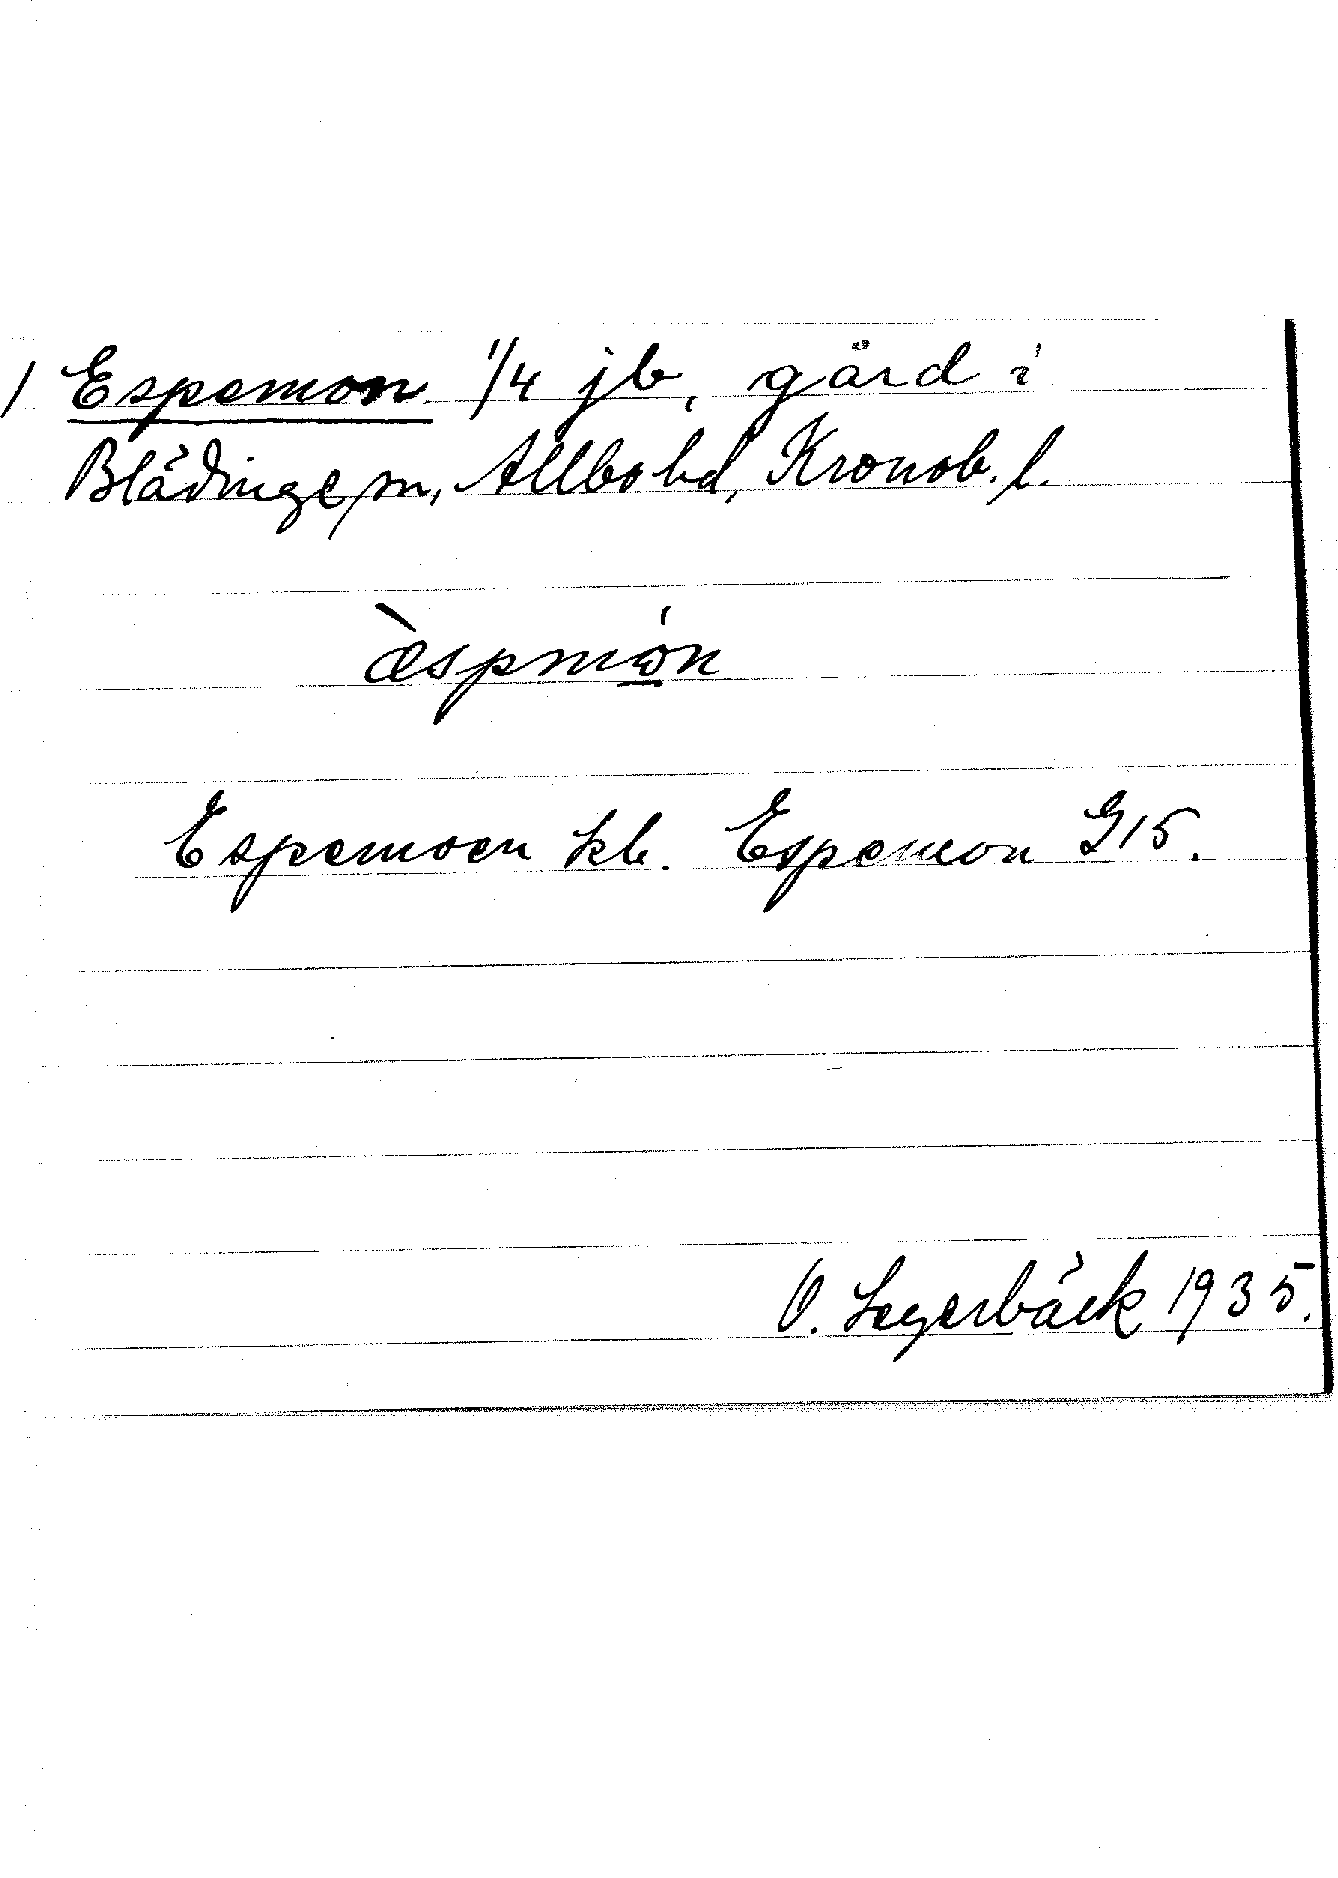 1 Espemon 1/4 jb, gård i
Blädinge sn, Allbo hd, Kronob. l.
æ̀spmón
Espemoen kb. Espemon G15.
O. Lagerbäck 1935.